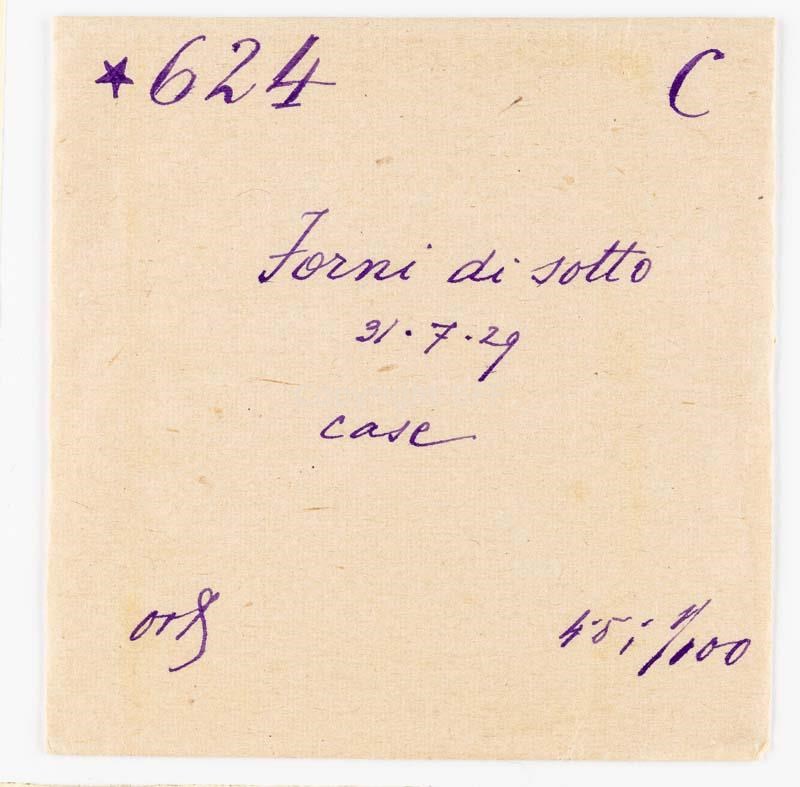 ★624 C
Forni di sotto
31·7·29
case
1/100